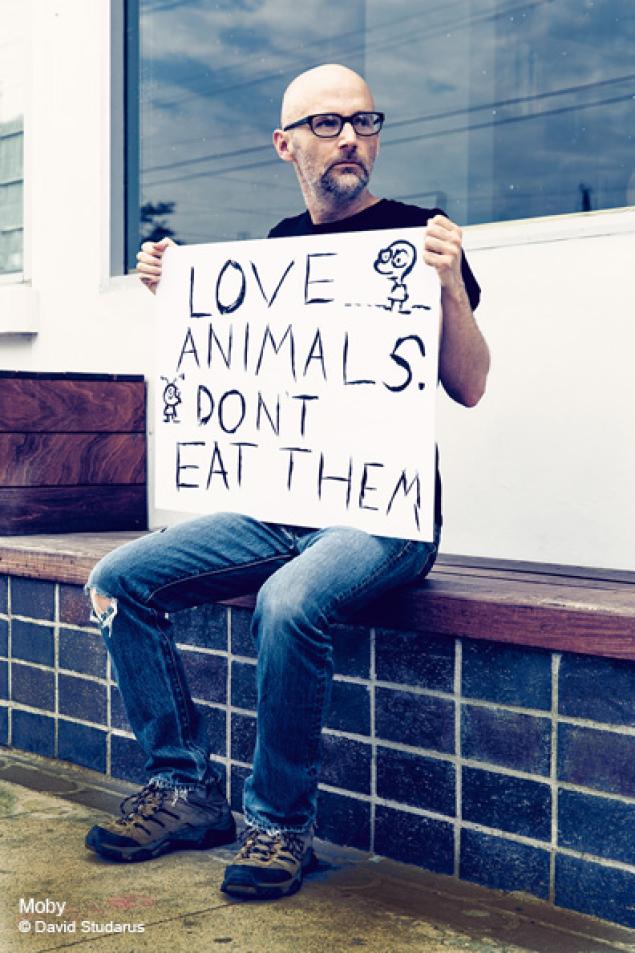 LOVE
ANIMALS.
DON'T
EAT THEM
Moby
© David Studarus